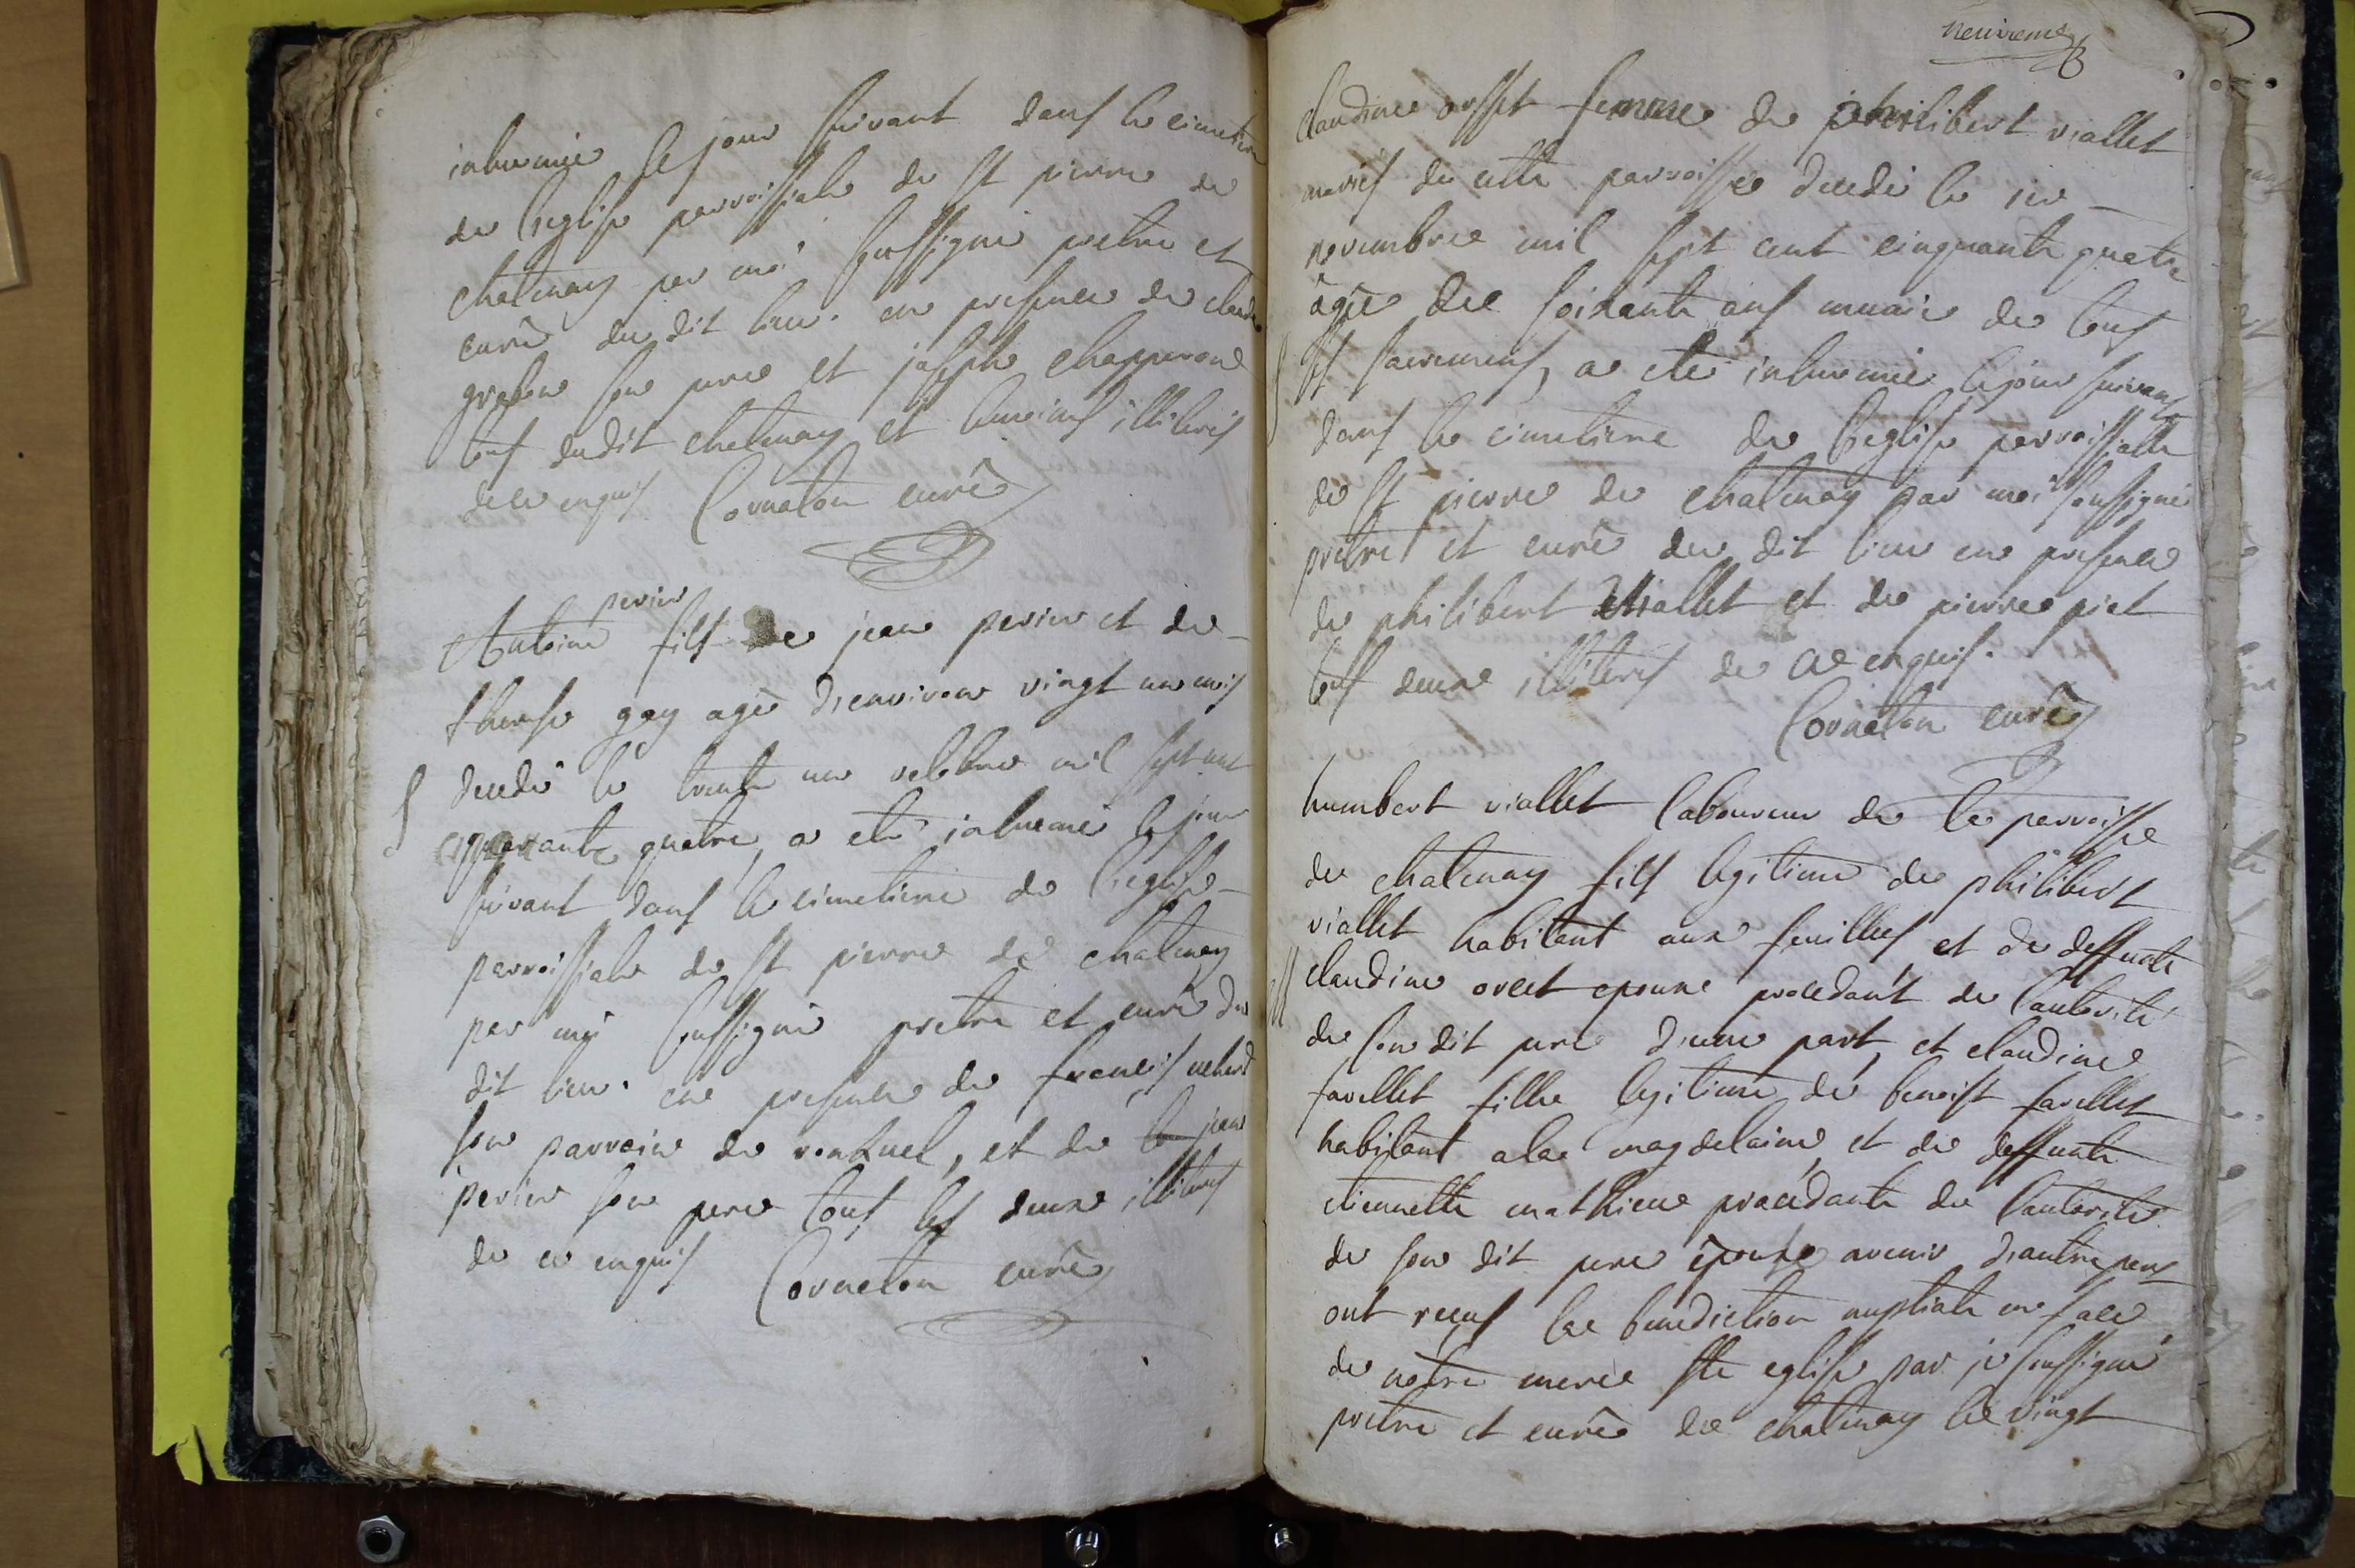 inhumée le jour suivant dans le cimetiere
de l'eglise parroissiale de st pierre de
chatenay par moi soussigné pretre et
curé du dit lieu. en presence de claude
son pere et joseph chapperone
tous dudit chatenay et temoins illiterés
de ce enquis Cornaton curé
perier
Antoine fils de jean perier et de
therese gay agé d'environ vingt un mois
decedé le trente un octobre mil sept cent
cinquante quatre, a eté inhumé le jour
suivant dans le cimetiere de l'eglise
parroissiale de st pierre de chatenay
par moi soussigné pretre et curé du
dit lieu. en presence de francois
son parrain de et de jean
perier son pere tous les deux illiterés
de ce enquis Cornaton curé
neuvieme
Claudine orsset femme de philibert viallet
de cette parroisse decedé le 1er
novembre mil sept cent cinquante quatre
àgée de soixante ans munie de tous
st sacremens, a eté inhumée le jour suivant
dans le cimetiere de l'eglise parroissialle
de st pierre de chatenay par moi soussigné
pretre et curé du dit lieu en presence
de philibert viallet et de pierre piet
tous deux illiterés de ce enquis.
Cornaton curé
humbert viallet laboureur de la parroisse
de chatenay fils legitime de philibert
viallet habitant aux feuilles et de deffunte
claudine orset epoux procedant de l'autorité
de son dit pere d'une part, et claudine
favellet fille legitime de benoist favellet
habitant a la magdelaine, et de deffunte
etiennette mathieu procedante de l'autorité
de son dit pere épouse avenir d'autre part
ont receus la benediction nuptiale en face
de notre mere ste eglise par je soussigné
pretre et curé de chatenay le vingt